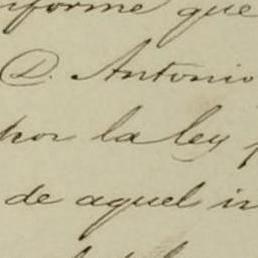 nforme que
D. Antonio
por la ley
de aquel in